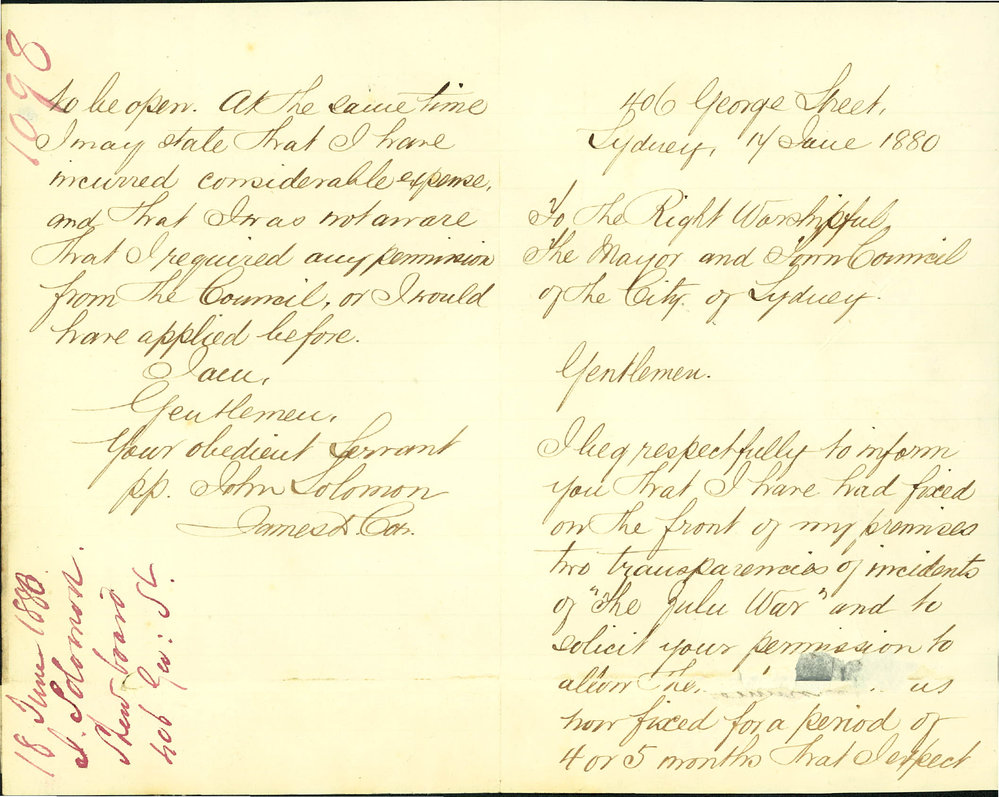 406 George Street,
Sydney, 17 June 1880
To The Right Worshipful,
The Mayor and Town Council
of the City of Sydney.
Gentlemen.
I beg respectfully to inform
you that I have had fixed
on the front of my premises
two transparencies of incidents
of "The Zulu War" and to
solicit your permission to
allow the. us
now fixed for a period of
4 or 5 months that I expect
to be open. At the same time
I may state that I have
incurred considerable expense,
and that I was not aware
that I required any permission
from the Council, or I would
have applied before.
I am,
Gentlemen,
Your obedient Servant
pp. John Solomon
James
1098
18 June 1880
J. Solomon.
Show board
406 Geo: St.